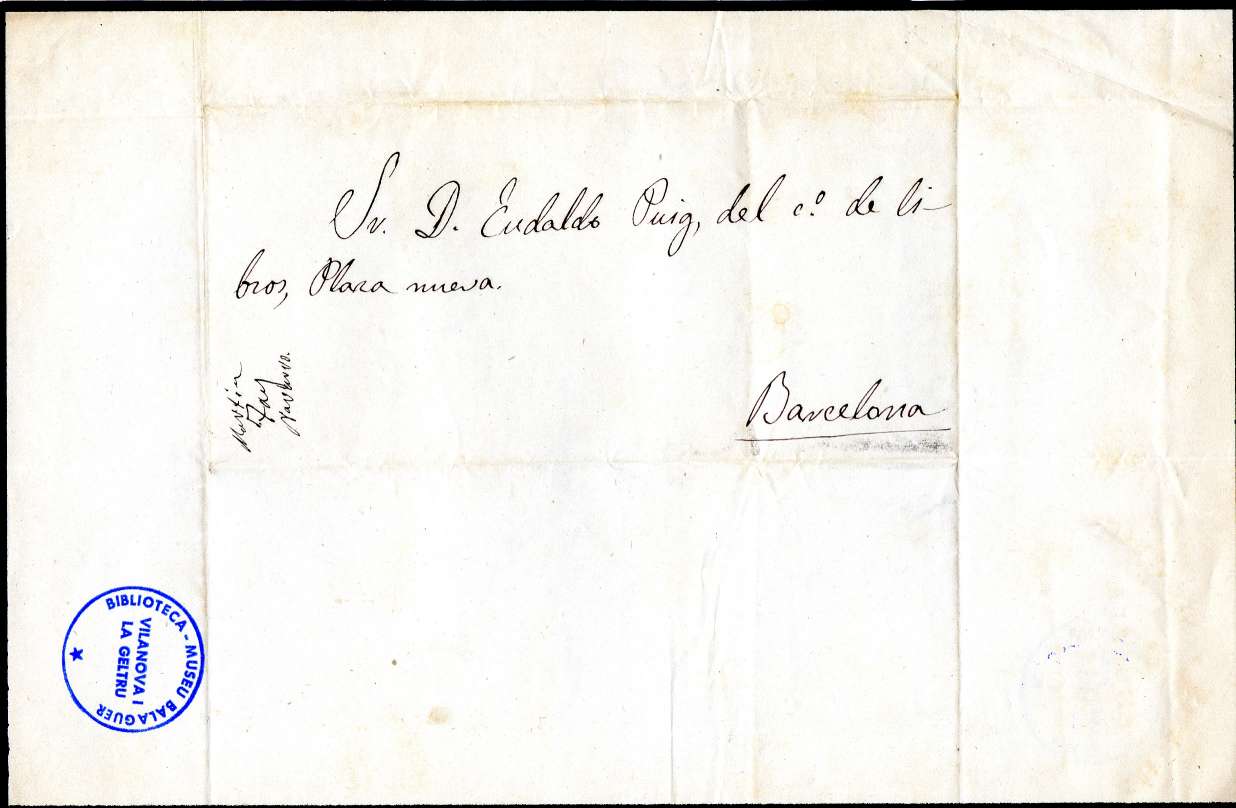 Sr. D. Eudaldo Puig, del c.º de li-
bros, Plaza nueva.
Martin
Fay
Navarro.
Barcelona
BIBLIOTECA - MUSEU BALAGUER
VILANOVA I
LA GELTRU